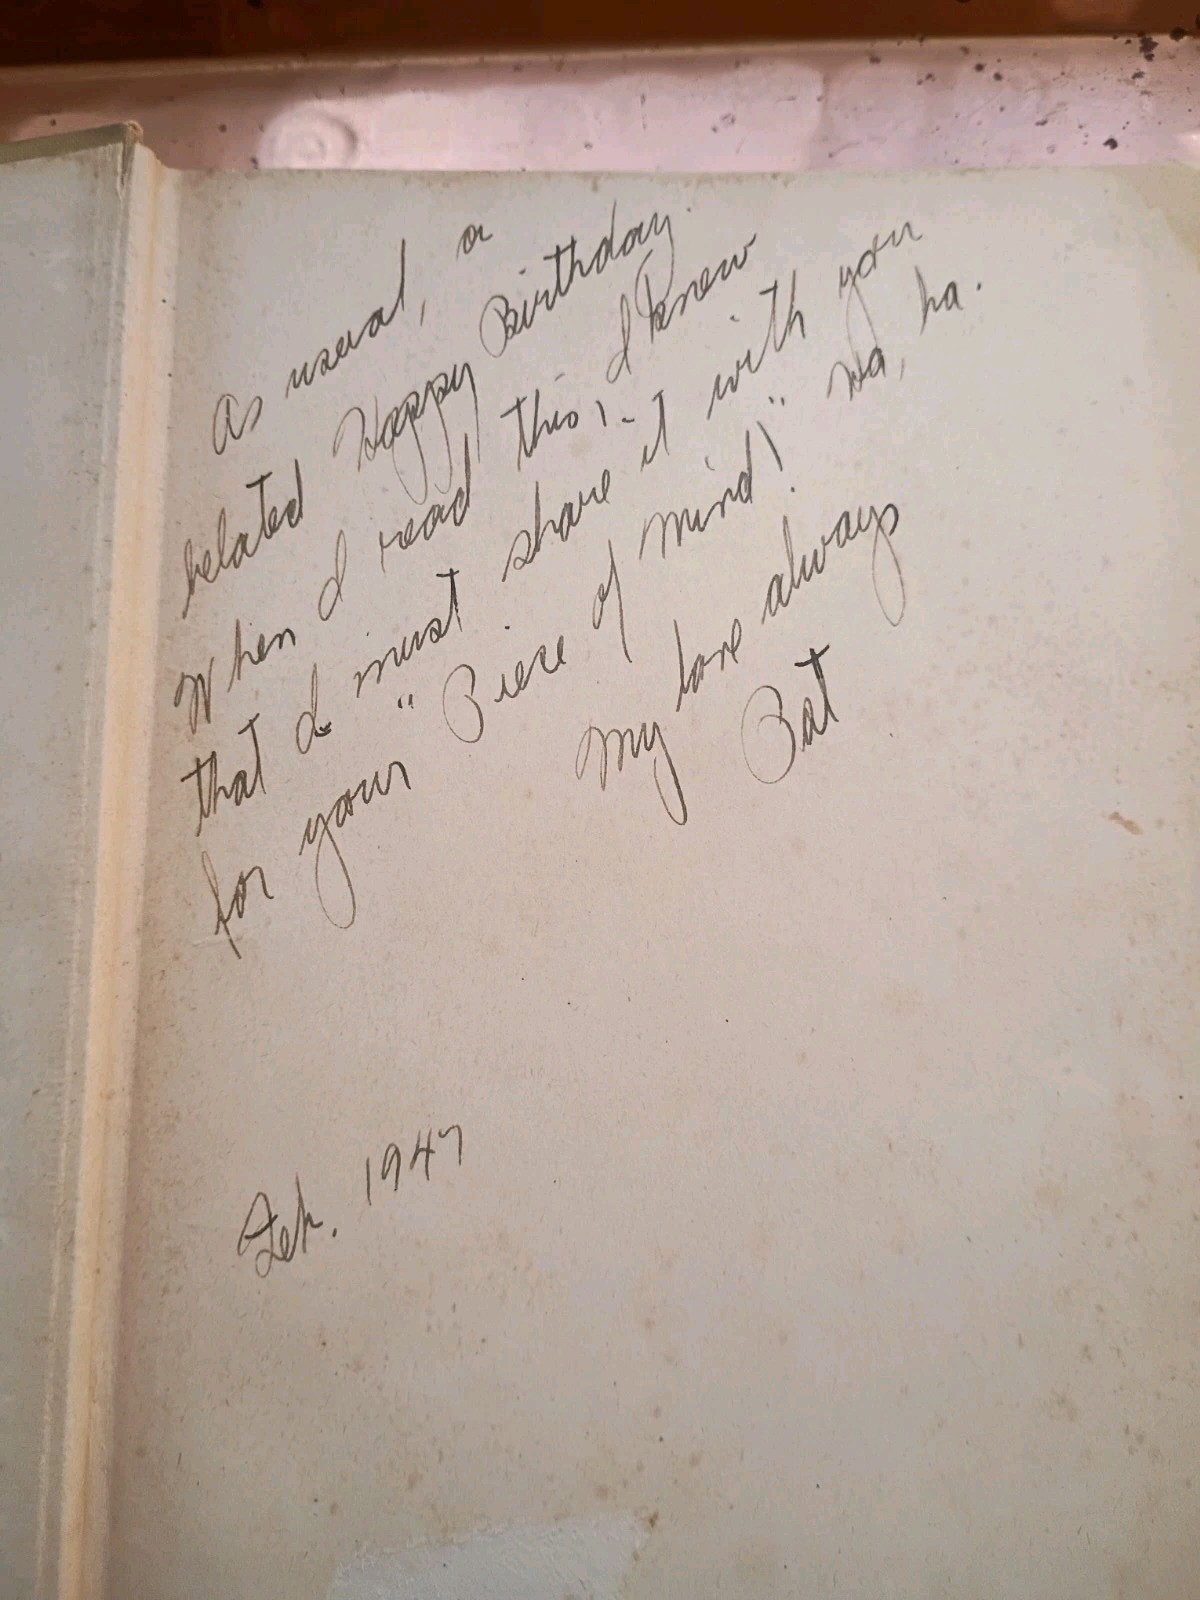 As usual, a
belated Happy Birthday.
When I read this, - I knew
that I must share it with you
for your "Piece of Mind!" Ha, ha.
My love always
Pat
Feb. 1947